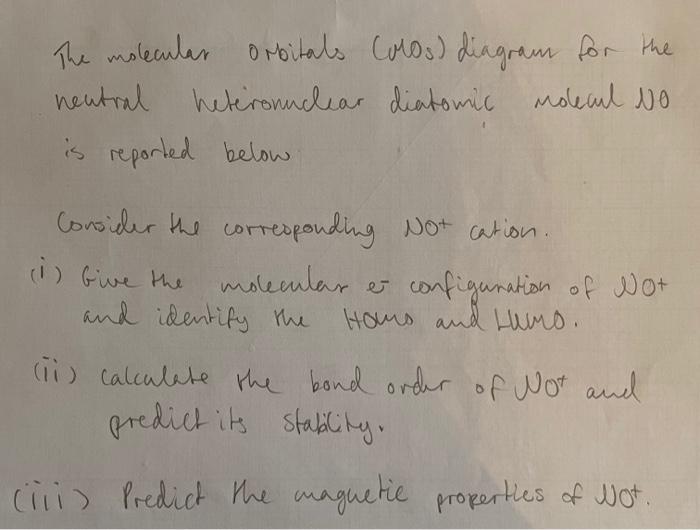 The molecular orbitals (MOs) diagram for the
neutral heteronuclear diatomic molecul NO
is reported below
Consider the corresponding NO+ cation.
(i) Give the molecular e- configuration of NO+
and identify the HOMO and LUMO.
(ii) calculate the bond order of NO+ and
predict its stability.
(iii) Predict the magnetic properties of NO+.